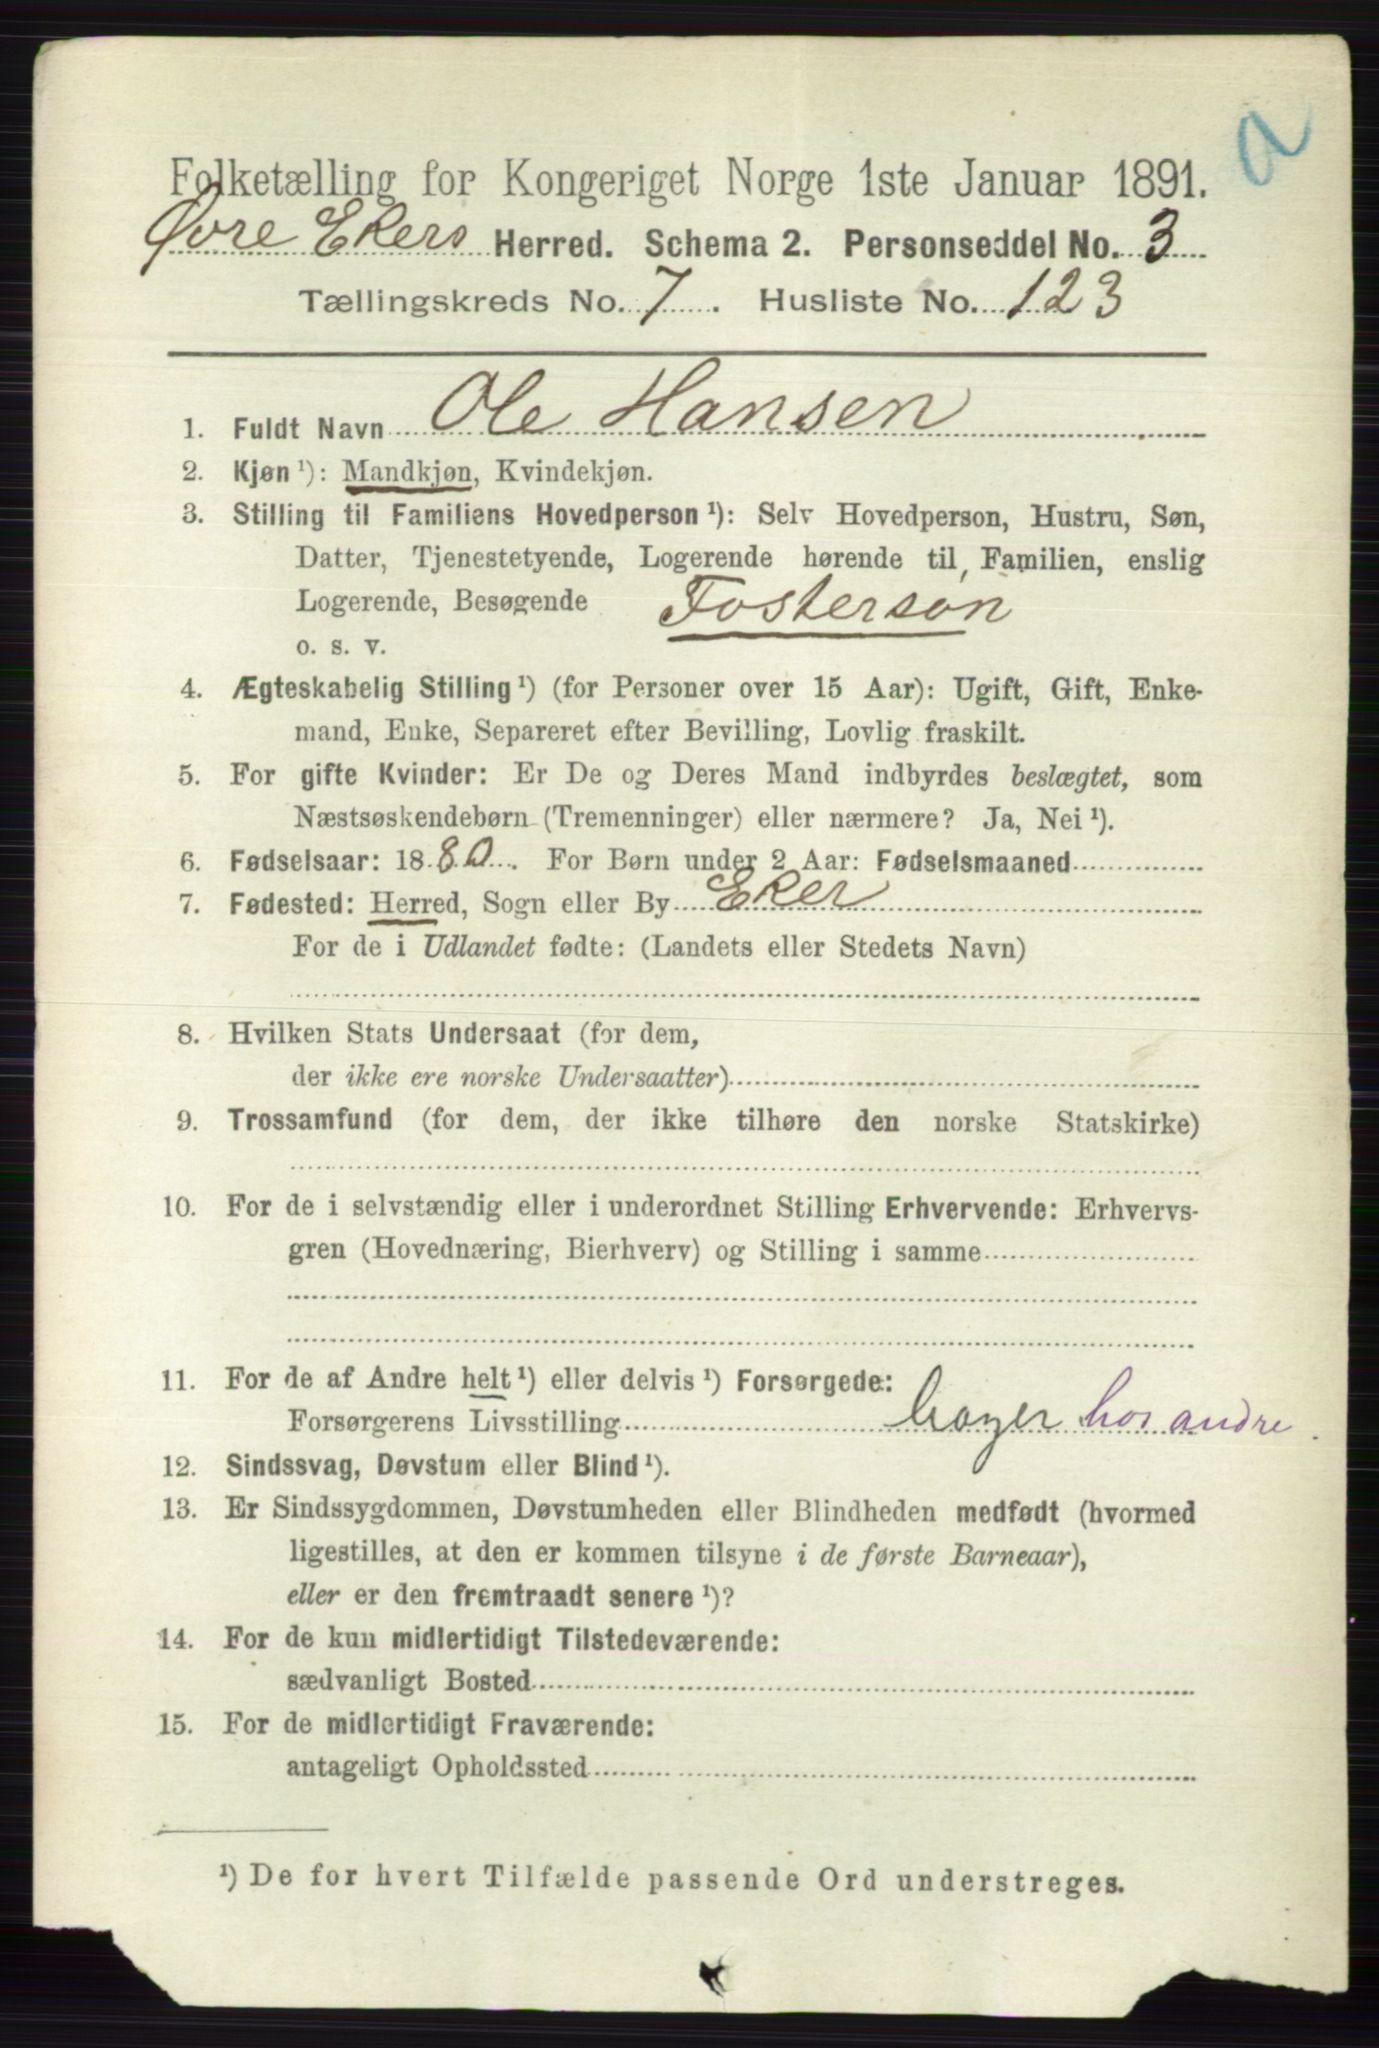 a
Folketælling for Kongeriget Norge 1ste Januar 1891.
Øvre Ekers Herred. Schema 2. Personseddel No. 3
Tællingskreds No. 7. Husliste No. 123
1. Fuldt Navn Ole Hansen
2. Kjøn ¹): Mandkjøn, Kvindekjøn.
3. Stilling til Familiens Hovedperson ¹): Selv Hovedperson, Hustru, Søn,
Datter, Tjenestetyende, Logerende hørende til Familien, enslig
Logerende, Besøgende Fostersøn
o. s. v.
4. Ægteskabelig Stilling ¹) (for Personer over 15 Aar): Ugift, Gift, Enke-
mand, Enke, Separeret efter Bevilling, Lovlig fraskilt.
5. For gifte Kvinder: Er De og Deres Mand indbyrdes beslægtet, som
Næstsøskendebørn (Tremenninger) eller nærmere? Ja, Nei ¹).
6. Fødselsaar: 1880. For Børn under 2 Aar: Fødselsmaaned
7. Fødested: Herred, Sogn eller By Eker
For de i Udlandet fødte: (Landets eller Stedets Navn)
8. Hvilken Stats Undersaat (for dem,
der ikke ere norske Undersaatter)
9. Trossamfund (for dem, der ikke tilhøre den norske Statskirke)
10. For de i selvstændig eller i underordnet Stilling Erhvervende: Erhvervs-
gren (Hovednæring, Bierhverv) og Stilling i samme
11. For de af Andre helt ¹) eller delvis ¹) Forsørgede:
Forsørgerens Livsstilling hos andre
12. Sindssvag, Døvstum eller Blind ¹).
13. Er Sindssygdommen, Døvstumheden eller Blindheden medfødt (hvormed
ligestilles, at den er kommen tilsyne i de første Barneaar),
eller er den fremtraadt senere ¹)?
14. For de kun midlertidigt Tilstedeværende:
sædvanligt Bosted
15. For de midlertidigt Fraværende:
antageligt Opholdssted
¹) De for hvert Tilfælde passende Ord understreges.